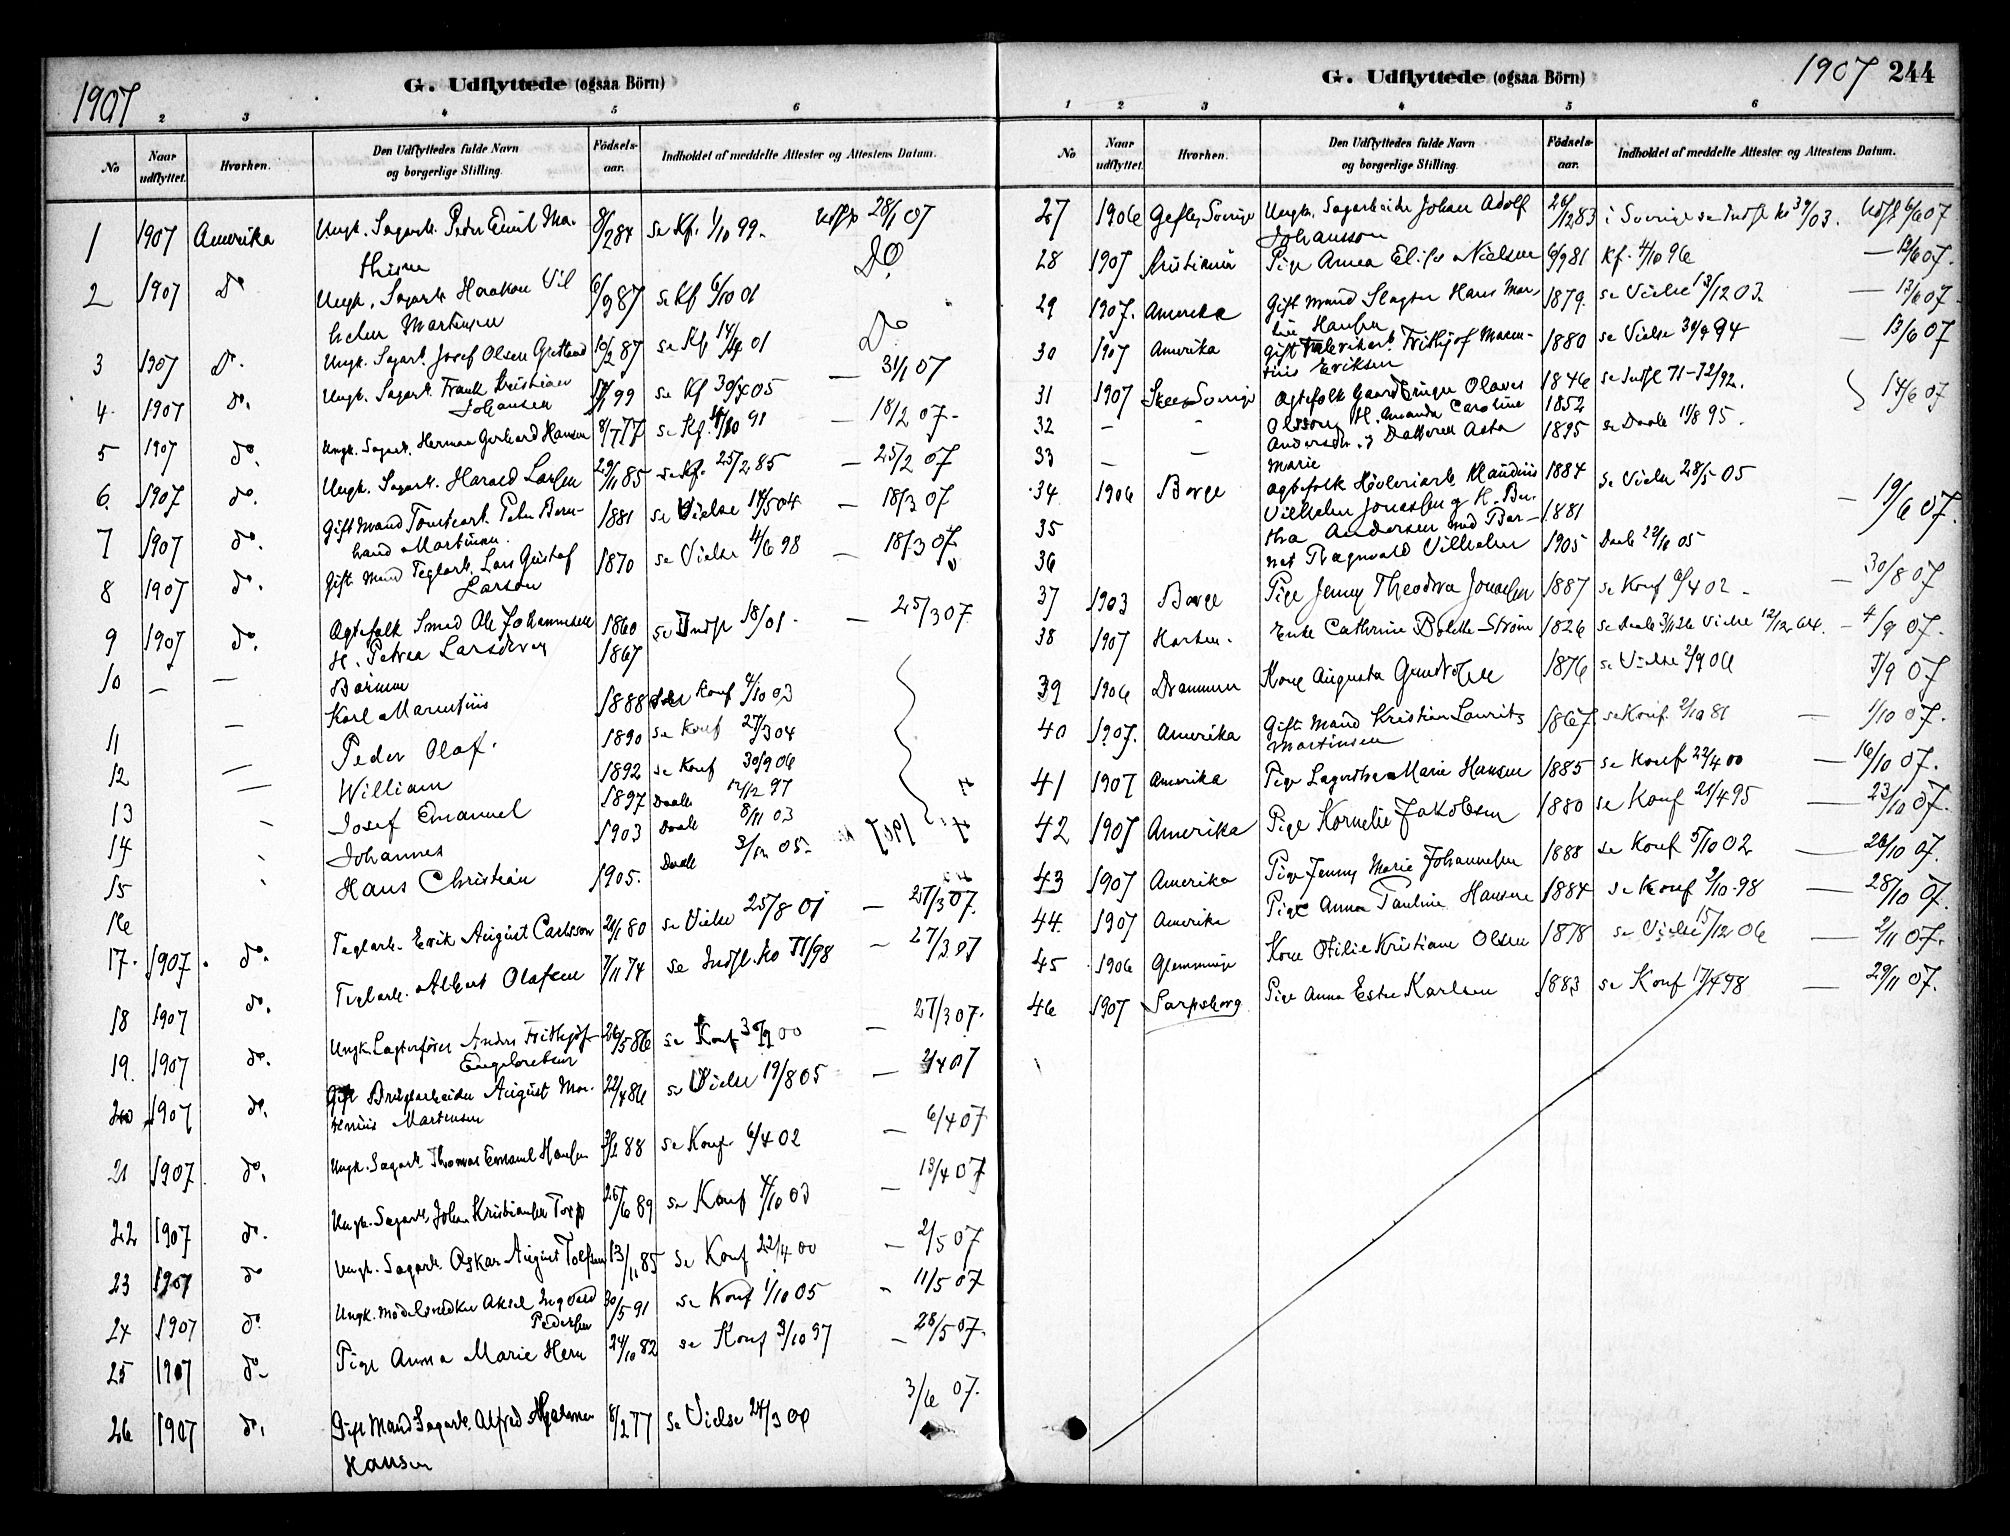 1907
G. Udflyttede (ogsaa Börn)
2 3 4 5 6
No Naar udflyttet. Hvorhen. Den Udflyttedes fulde Navn og borgerlige Stilling. Födsels-aar. Indholdet af meddelte Attester og Attestens Datum.
1 1907 Amerika Ungk. Sagarb. Peder Emil Ma- 8/2 84 se Kf. 1/10 99. 28/1 07
thisen
2 1907 Do Ungk. Sagarb. Haakon Vil 6/9 87 se Kf 6/10 01 Do.
helm Martinsen
3 1907 Do. Ungk. Sagarb. Josef Olsen 10/2 87 se Kf 14/4 01 Do
4. 1907 do. Ungk. Sagarb. Frank Kristian 99 se Kf 30/4 05 — 31/1 07
Johansen
5 1907 do. Ungk. Sagarb. Herman Gerhard Hansen 8/7 77 se Kf. 91 — 18/2 07-
6. 1907 do. Ungk. Sagarb. Harald Larsen 29/11 85 se Kf. — 25/2 07
7 1907 do. Gift Mand Tomtearb. Peder Bern- 1881 se Vielse 14/5 04 — 18/3 07
hard Martinsen.
8 1907 do. Gift Mand Teglarb. Lars Gustaf 1870 se Vielse 4/6 98 — 18/3 07
Larson
9 1907 do. Ægtefolk Smed Ole Johannesen 1860 se Indfl 18/01. — 25/3 07
10 — — H. Petrea Larsdtr 1867
Börnene
Karl Marentius 1888 Konf 4/10 03
11 — Peder Olaf. 1890 se Konf 27/3 04
12 — William 1892 se Konf 30/9 06
13 — Josef Emanuel 1897 Daab 12/12 97
14 Johannes 1903 Daab 8/11 03
15 Hans Christian 1905. Daab 3/12 05.
16
17. 1907. do. Teglarb. Erik August Carlsson 28/1 80 se Vielse 25/8 01 — 27/3 07.
18 1907 do. Teglarb. Albert Olafsen 7/11 74 se Indfl. No 71/98 — 27/3 07
19. 1907 do. Ungk. Anders Frithjof 26/5 86 se Konf 00 — 27/3 07.
Engebretsen
20 1907 do. Gift Brugsarbeider August Mar- 22/4 86 se Vielse 19/8 05 — 2/4 07
tenius Martinsen
21 1907. do. Ungk. Sagarb. Thomas Emanuel Hansen 88 se Konf. 6/4 02 — 6/4 07
22 1907 do. Ungk. Sagarb. Johan Kristiansen Torp 25/6 89 se Konf 4/10 03 — 13/4 07
23 1907 do Ungk. Sagarb. Oskar August Tolfsen 13/11 85 se Konf 22/4 00 — 2/5 07
24 1907 do. Ungk. Modelsnedker Aksel Ingvald 30/5 91 se Konf 1/10 05 - 11/5 07
Pedersen
25 1907 do- Pige Anna Marie Hern 24/10 82 se Konf 3/10 97 — 28/5 07.
26 1907 do. Gift Mand Sagarb. Alfred Hjalmar 8/2 77 se Vielse 24/3 00 3/6 07.
Hansen
1907 244
G. Udflyttede (ogsaa Börn)
1 2 3 4 5 6
No Naar udflyttet. Hvorhen. Den Udflyttedes fulde Navn og borgerlige Stilling. Födsels-aar. Indholdet af meddelte Attester og Attestens Datum.
27 1906 Gefle, Sverige Ungk. Sagarbeider Johan Adolf 26/12 83 i Sverige se Indfl No 39/03. Udfl 6/6 07
Johansson
28 1907 Kristiania Pige Anna Elise Nielsen 6/9 81 Kf. 4/10 96 — 12/6 07.
29 1907. Amerika Gift Mand Slagter Hans Mar- 1879. se Vielse 13/12 03. — 12/6 07
tin Hansen
30 1907 Amerika Gift Fabrikarb. Frithjof Maren- 1880 se Vielse 94 — 13/6 07
tius Eriksen
31 1907 Skee Sverige Ægtefolk Gaardbruger Olaves 1846 se Indfl 71-72/92. 14/6 07
32 — — Olsson, H. Amanda Caroline 1852
33 — — Anderson. & Datteren Asta 1895 se Daab 11/8 95.
Marie
34 1906 Borge Ægtefolk Höleriarb. Klaudius 1884 se Vielse 28/5 05 — 19/6 07.
35 Vilhelm Jonassen & H. Ber- 1881
tha Andersen med Bar-
36 net Ragnvald Vilhelm 1905 Daab 05
37 1903 Borge Pige Jenny Theodora Jonassen 1887 se Konf 6/4 02 - — 30/8 07
38 1907 Horten. Enke Cathrine Bolette Ström 1826 se Daab 3/11 26 Vielse 12/12 64. - 4/9 07.
39 1906 Drammen Kone Augusta 1876 se Vielse 2/9 06 7/9 07
40 1907. Amerika Gift Mand Kristian Laurits 1867 se Konf. 2/10 81 — 1/10 07.
Martinsen
41 1907 Amerika Pige Lagertha Marie Hansen 1885 se Konf 22/4 00 — 16/10 07.
42 1907 Amerika Pige Kornelie Jakobsen 1880 se Konf 21/4 95 — 23/10 07.
43 1907 Amerika Pige Jenny Marie Johannesen 1888 se Konf 5/10 02 — 26/10 07.
44. 1907 Amerika Pige Anna Pauline Hansen 1884 se Konf 2/10.98 — 28/10 07.
45 1906 Glemminge Kone Otilie Kristiane Olsen 1878 se Vielse 15/12 06 — 2/11 07.
46 1907 Sarpsborg Pige Anna Ester Karlsen 1883 se Konf 17/4 98 — 29/11 07.